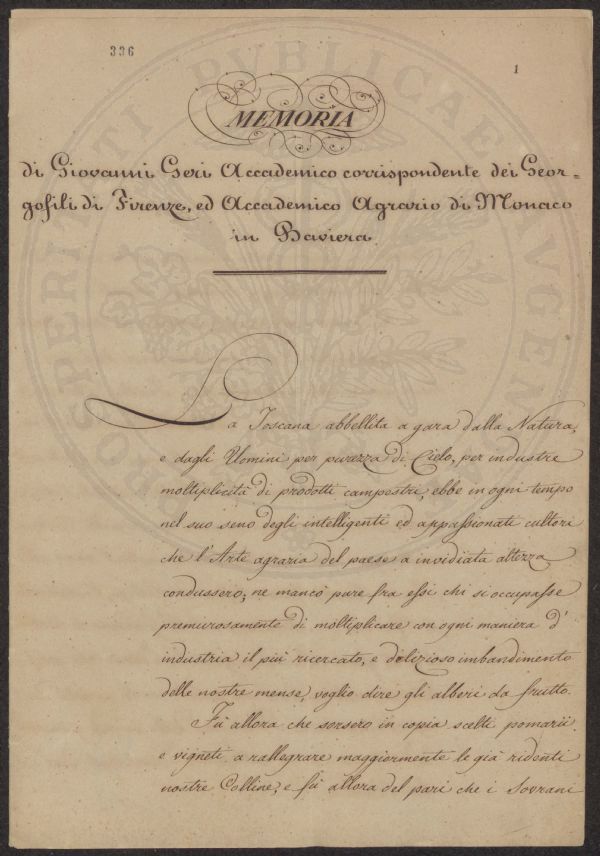 336
1
MEMORIA
di Giovanni Geri Accademico corrispondente dei Geor=
gofili di Firenze, ed Accademico Agrario di Monaco
in Baviera
PROSPERITATI PVBLICAE AVGENDAE
La Toscana abbellita a gara dalla Natura,
e dagli Uomini per purezza di Cielo, per industre
moltiplicità di prodotti campestri, ebbe in ogni tempo
nel suo seno degli intelligenti ed appassionati cultori
che l'Arte agraria del paese a invidiata altezza
condussero; ne mancò pure fra essi chi si occupasse
premurosamente di moltiplicare con ogni maniera d'
industria il più ricercato, e delizioso imbandimento
delle nostre mense, voglio dire gli alberi da frutto.
Fù allora che sorsero in copia scelti pomarii
e vigneti a rallegrare maggiormente le già ridenti
nostre Colline, e fù allora del pari che i Sovrani